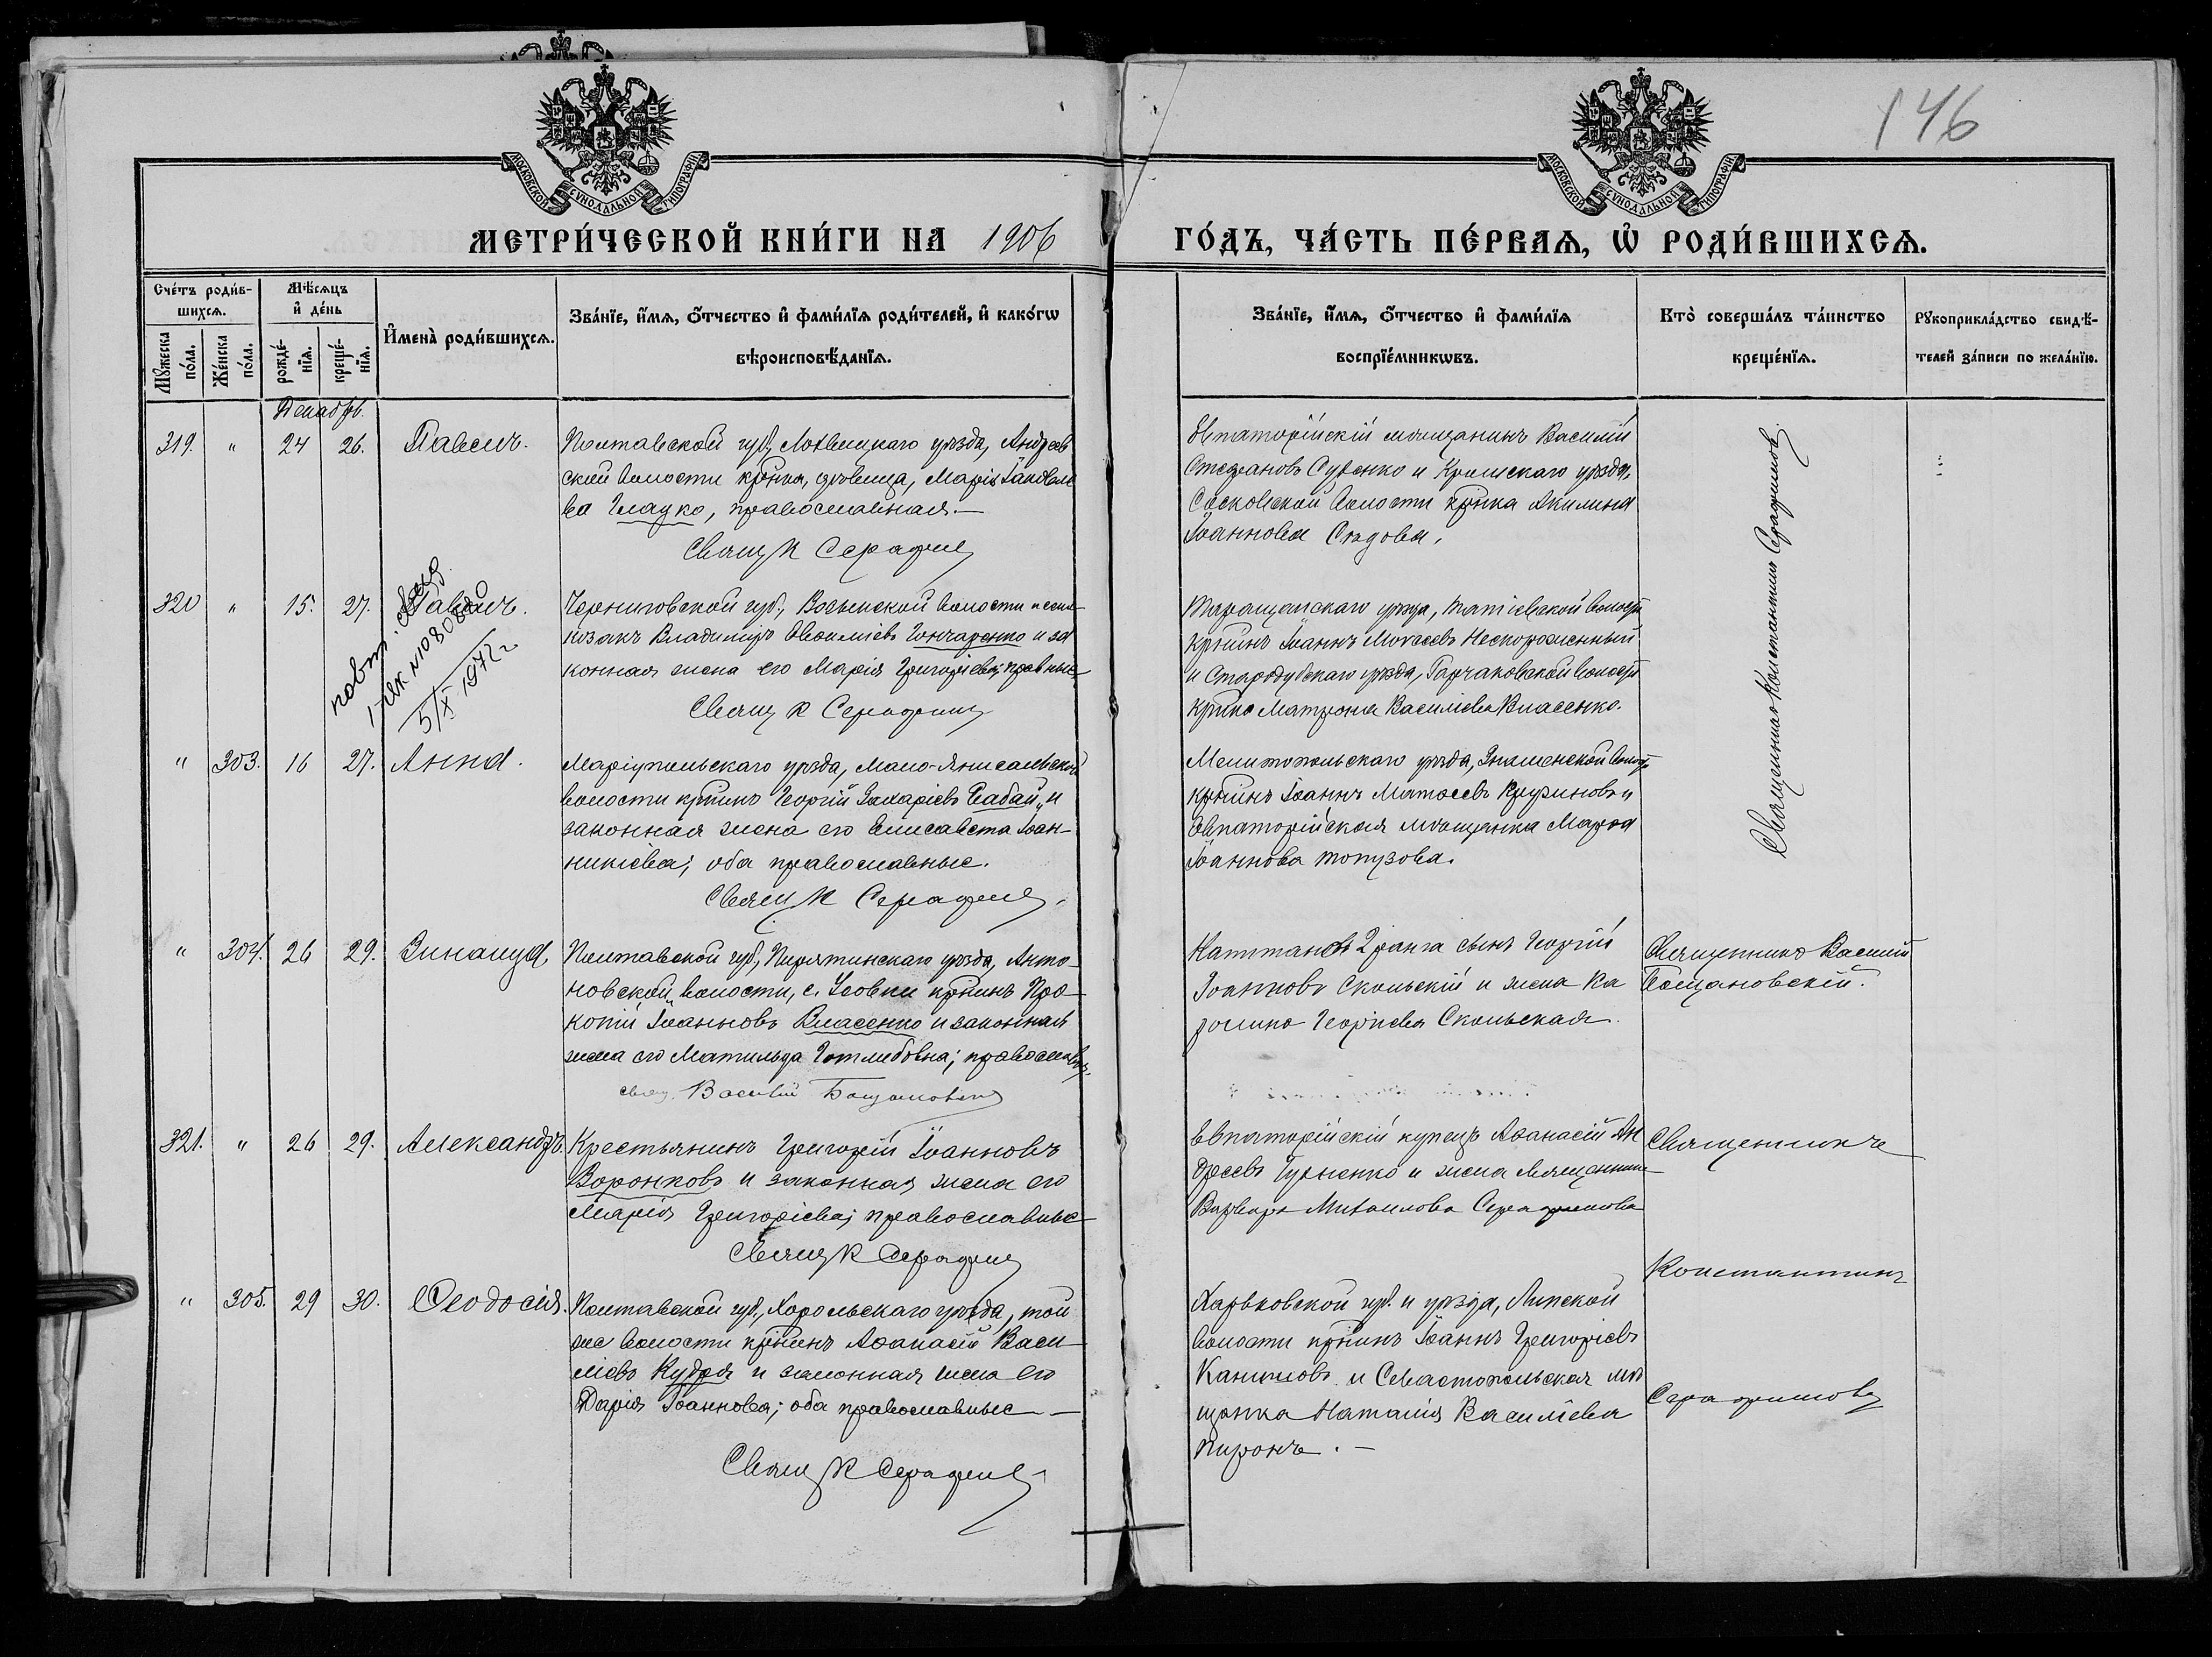 146
МОСКОВСКОЙ СѴНОДАЛЬНОЙ ТИПОГРАФІИ
МОСКОВСКОЙ СѴНОДАЛЬНОЙ ТИПОГРАФІИ
МЕТРИ́ЧЕСКОЙ КНИ́ГИ НА 1906 ГО́ДЪ, ЧА́СТЬ ПЕ́РВАЯ, Ѽ РОДИ́ВШИХСЯ.
Сче́тъ роди́в-
шихся.
Мѣ́сяцъ
и҆ де́нь
Мꙋ́жеска по́ла.
Же́нска по́ла.
рожде́-
нїя.
креще́-
нїя.
И҆мена̀ роди́вшихся.
Зва́нїе, и҆́мя, ѻ҆́тчество и҆ фами́лїя роди́телей, и҆ како́гѡ
вѣроисповѣ́данїя.
Зва́нїе, и҆́мя, ѻ҆́тчество и҆ фами́лїя
воспрїе́мникѡвъ.
Кто̀ соверша́лъ та́инство
креще́нїя.
Рꙋкоприкла́дство свидѣ́-
телей за́писи по жела́нїю.
Декабрь.
319. " 24 26. Павелъ.
Полтавской губ., Лохвицкаго уѣзда, Андреев
ской волости кр-нка, вдовица, Марія Іаковле
ва Гладко, православная.—
Свящ К Серафим
Евпаторійскій мѣщанинъ Василій
Стефановъ Супенко и уѣзда,
волости кр-нка Акилина
Іоаннова Сѣдова.
Священникъ Константинъ Серафимовъ
320 " 15. 27. Павелъ.
повт. свид.
I-ЯК №080880
5/X 1972 г
Черниговской губ., волости
козакъ Владиміръ Гончаренко и за
конная жена его Марія Григоріева; правные
Свящ К Серафим
Таращанскаго уѣзда, волости
кр-нинъ Іоаннъ Моѵсеевъ
и Стародубскаго уѣзда, волости
кр-нка Матрона Василіева Власенко.
" 303. 16 27. Анна.
Маріупольскаго уѣзда, Мало-Янисальской
волости кр-нинъ Георгій Захаріевъ Бабай, и
законная жена его Елисавета Іоан-
никіева; оба православные.
Свящ К Серафим
Мелитопольскаго уѣзда, Знаменской волости
кр-нинъ Іоаннъ Матѳеевъ и
Евпаторійская мѣщанка Марѳа
Іоаннова Топузова.
" 304. 26 29. Зинаида
Полтавской губ., Пирятинскаго уѣзда, Анто-
новской волости, с. Усовки кр-нинъ Про-
копій Іоанновъ Власенко и законная
жена его Матильда Готлибовна; православн.
свящ. Василій Бощановскій
Капитанъ 2 ранга сынъ Георгій
Іоанновъ Скольскій и жена Ка
ролина Георгіева Скольская.
Священникъ Василій
Бощановскій.
321. " 26 29. Александръ.
Крестьянинъ Григорій Іоанновъ
Воронковъ и законная жена его
Марія Григоріева; православные
Свящ К Серафим
Евпаторійскій купецъ Аѳанасій Ан
дреевъ и жена священника
Варвара Михаилова Серафимова
Священникъ
Константинъ
Серафимовъ
" 305. 29 30. Ѳеодосія.
Полтавской губ., Хорольскаго уѣзда, той
же волости кр-нинъ Аѳанасій Васи-
ліевъ Кудря и законная жена его
Дарія Іоаннова; оба православные —
Свящ К Серафим
Харьковской губ. и уѣзда, Липской
волости кр-нинъ Іоаннъ Григоріевъ
и Севастопольская мѣ
щанка Наталія Василіева
Пиронъ. —